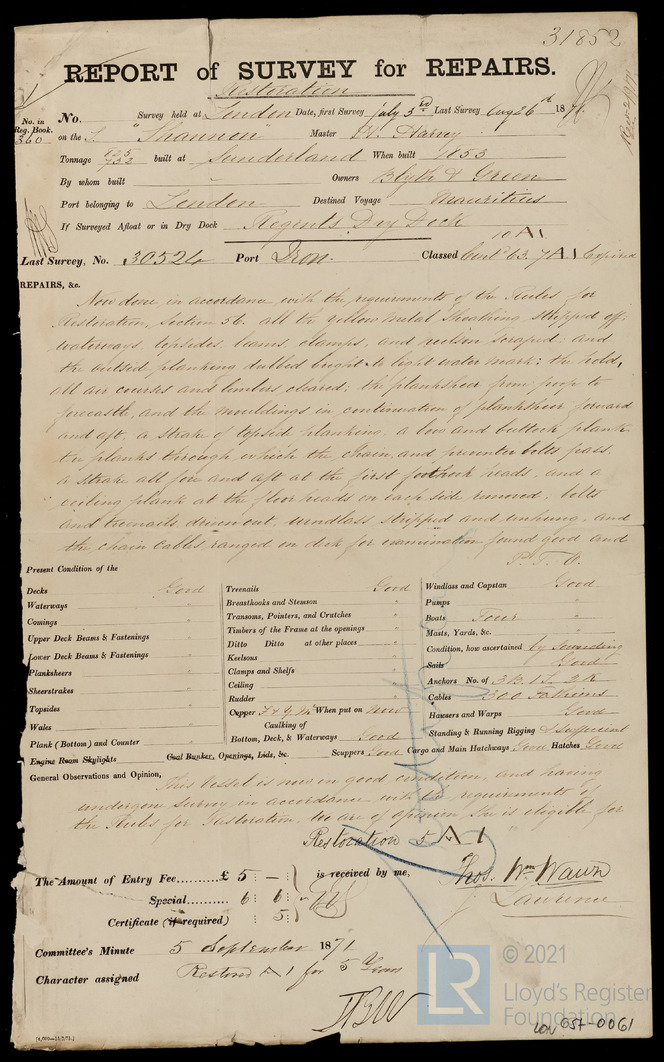 31852
REPORT of SURVEY for REPAIRS.
Restoration
No. in Reg. Book. 360
No. Survey held at London Date, first Survey July 3rd Last Survey Aug 26th 1871.
on the S. "Shannon" Master H. Harvey
Tonnage 825 732 built at Sunderland When built 1853
By whom built " Owners Blyth & Green
Port belonging to London Destined Voyage Mauritius
If Surveyed Afloat or in Dry Dock Regents Dry Dock
10 A1
Last Survey, No. 30526 Port Lon. Classed Cont. 63. 7 A.1 Expired
REPAIRS, &c.
Now done in accordance with the requirements of the Rules for
Restoration, Section 56. all the yellow metal sheathing stripped off:
waterways, topsides, beams, clamps, and keelson scraped; and
the outside planking dubbed bright to light water mark: the hold,
all air courses and limbers cleared; the planksheer from poop to
forecastle, and the mouldings in continuation of planksheer forward
and aft, a strake of topside planking, a bow and buttock plank
the planks through which the chain and preventer bolts pass,
a strake all fore and aft at the first foothook heads, and a
ceiling plank at the floor heads on each side removed, bolts
and treenails driven out, windlass stripped and unhung, and
the chain cables ranged on deck for examination found good and
P. T. O.
Present Condition of the
Decks Good
Waterways "
Comings "
Upper Deck Beams & Fastenings "
Lower Deck Beams & Fastenings "
Planksheers "
Sheerstrakes "
Topsides "
Wales "
Plank (Bottom) and Counter "
Engine Room Skylights
Treenails Good
Breasthooks and Stemson "
Transoms, Pointers, and Crutches "
Timbers of the Frame at the openings "
Ditto Ditto at other places "
Keelsons "
Clamps and Shelfs "
Ceiling "
Rudder "
Copper F & Y M When put on now
Caulking of
Bottom, Deck, & Waterways Good
Coal Bunker, Openings, Lids, &c.
Scuppers Good Cargo and Main Hatchways Good Hatches Good
Windlass and Capstan Good
Pumps "
Boats Four "
Masts, Yards, &c. "
Condition, how ascertained by Sounding
Sails Good
Anchors No. of 3 B. 1 S. 2 K
Cables 300 Fathoms
Hawsers and Warps Good
Standing & Running Rigging & Sufficient
General Observations and Opinion, This Vessel is now in good condition, and having
undergone survey in accordance with the requirements of
the Rules for Restoration, we are of opinion she is eligible for
Restoration 5 A 1
The Amount of Entry Fee......... £ 5 : — : is received by me,
Special ......... 6 : 6 :
Certificate (if required) : 5 :
Thos. Wm. Wawn
J. Laurence
Committee's Minute 5 September 1871
Character assigned Restored A1 for 5 Years
© 2021
LR
Lloyd's Register
Foundation
LON 657-0061